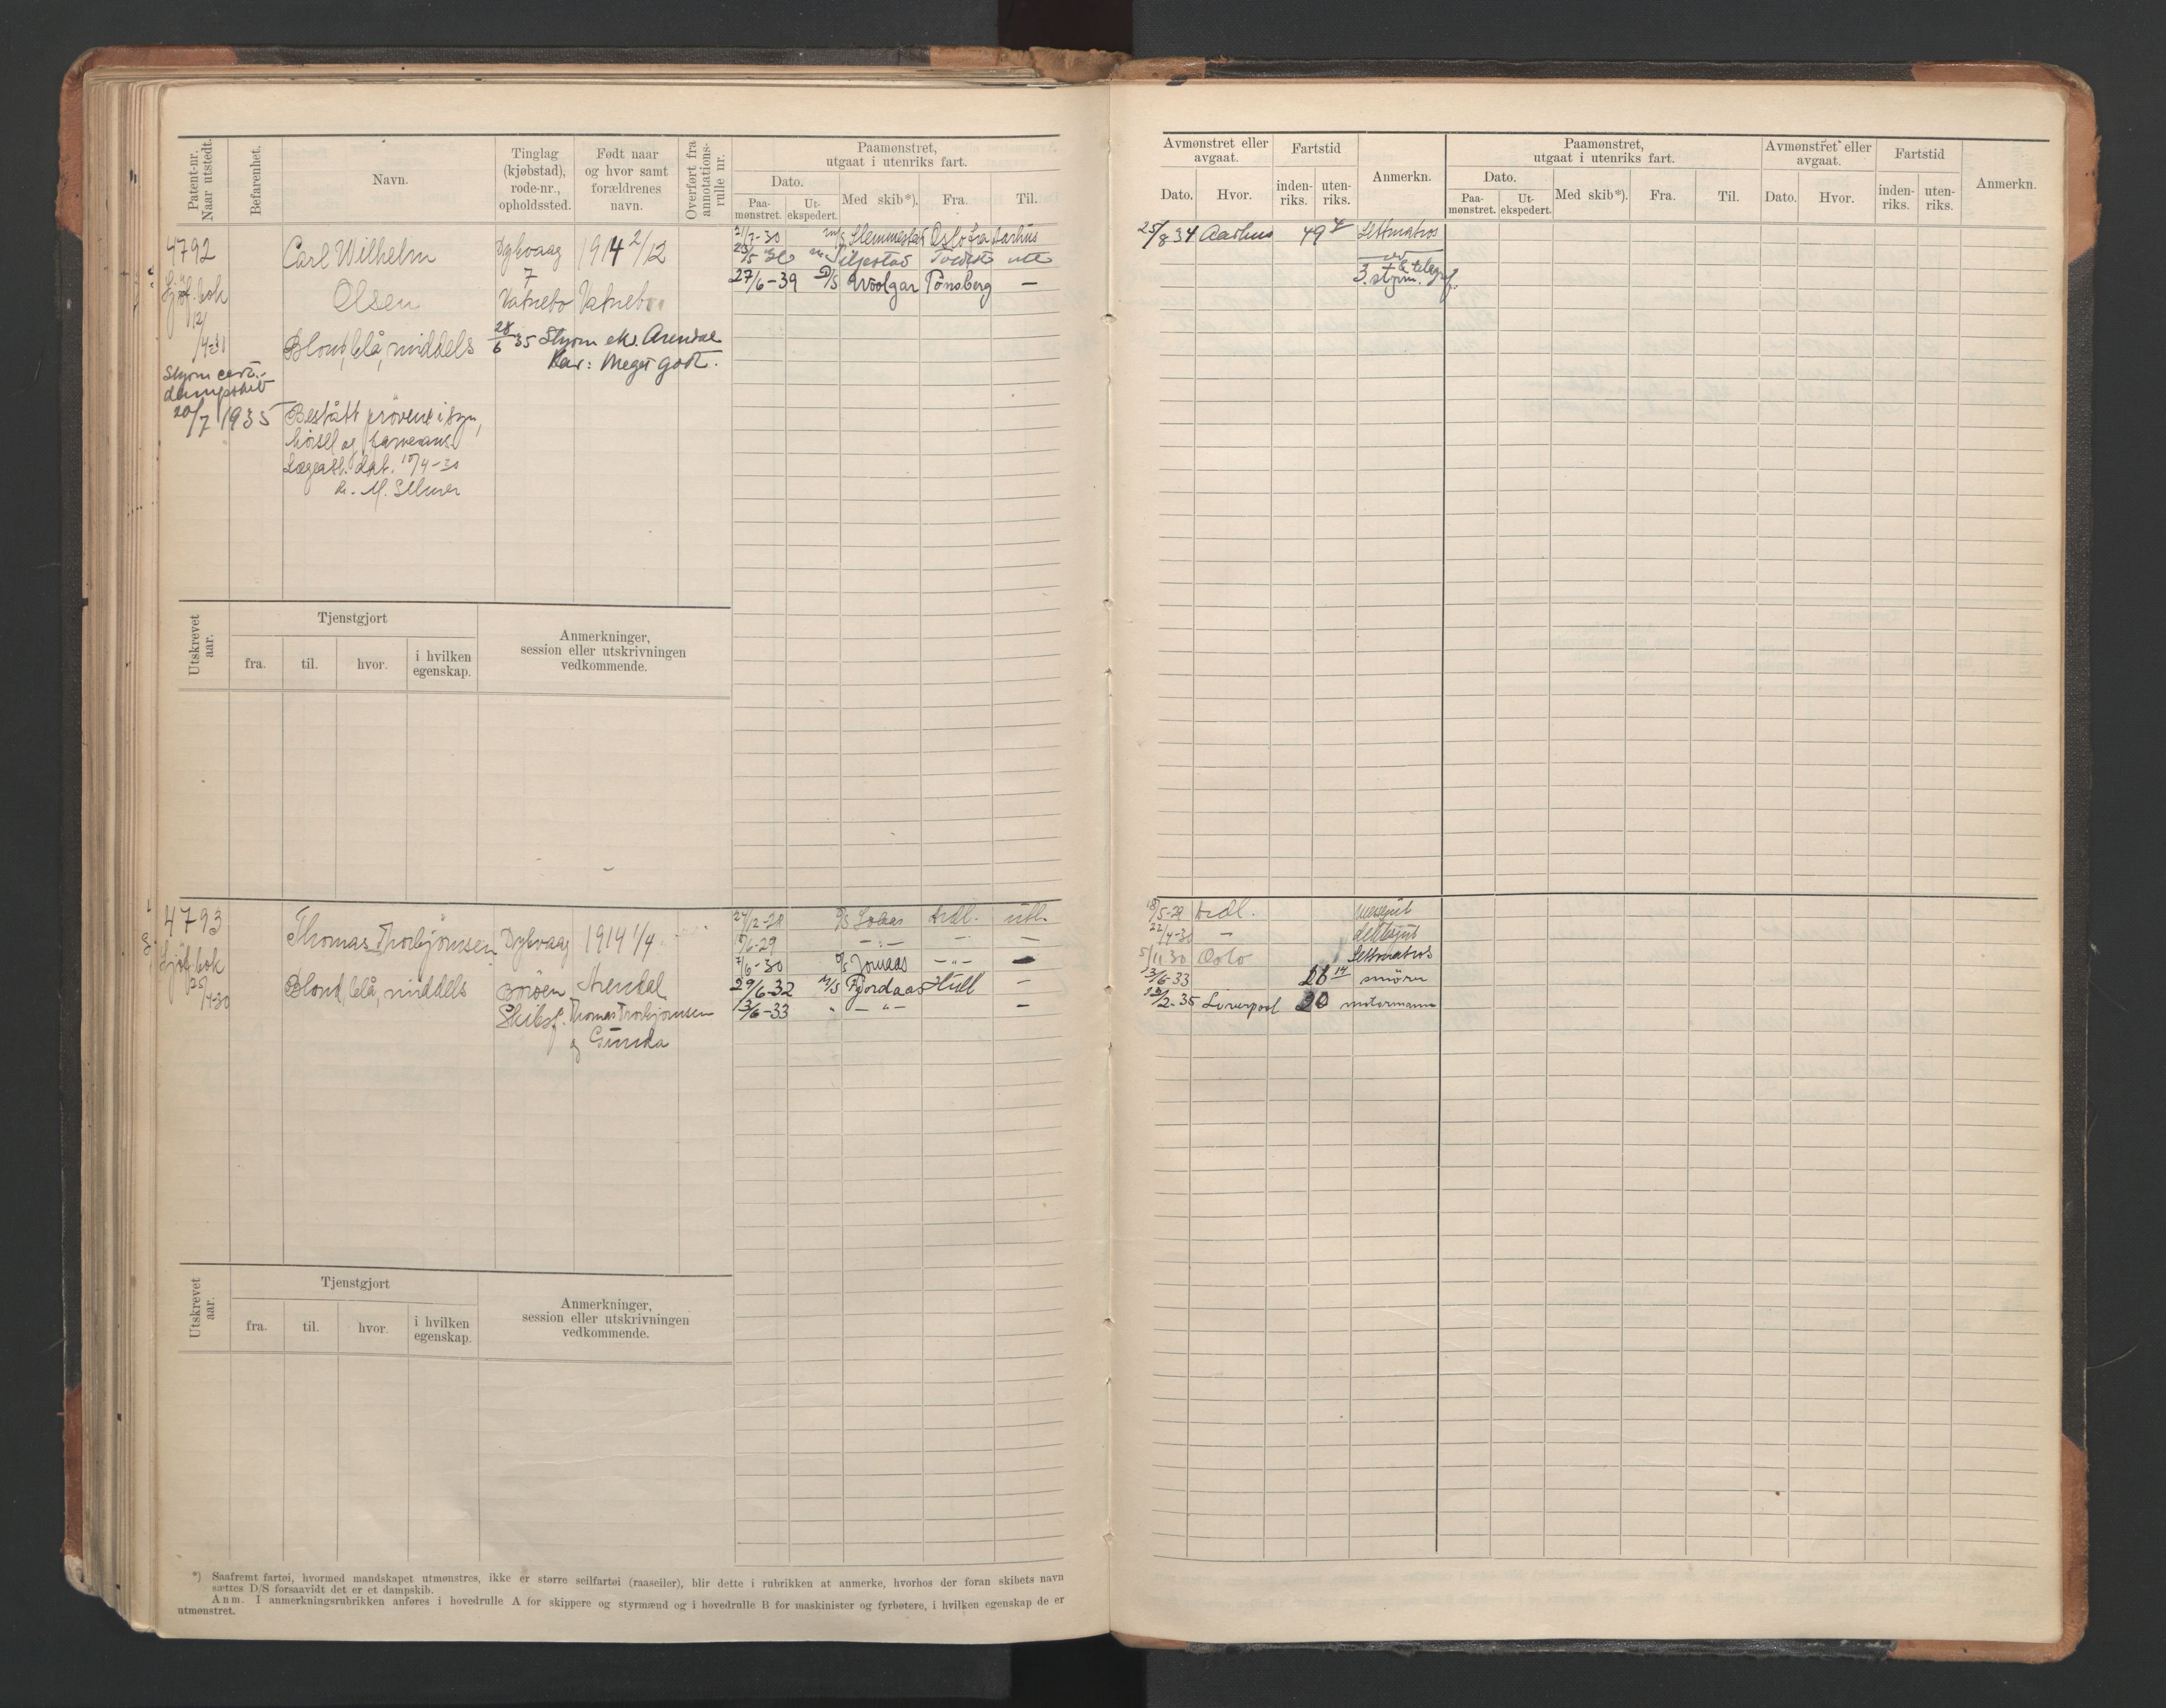 Patent-nr. Naar utstedt.
Befarenhet.
Navn.
Tinglag (kjøbstad), rode-nr., opholdssted.
Født naar og hvor samt forældrenes navn.
Overført fra annotations-rulle nr.
Paamønstret, utgaat i utenriks fart.
Dato.
Paa-mønstret.
Ut-ekspedert.
Med skib*).
Fra.
Til.
4792
Carl Wilhelm
Olsen
Dybvaag
7
Vatnebo
1914 2/12
Vatnebo
Sjöf.bok
12/4-30
Blond, blå, middels
28/6 35 Styrm. eks. Arendal
Kar: Meget godt.
Styrm cert.
dampskib
20/7 1935
Bestått prövene i syn,
hörsel og farvesans.
Lægeatt. dat. 10/4-30
M/S Slemmestad Oslo Aarhus
27/6-39 D/S Woolgar Tønsberg —
Utskrevet aar.
Tjenstgjort
fra.
til.
hvor.
i hvilken egenskap.
Anmerkninger, session eller utskrivningen vedkommende.
4793
Thomas Thorbjörnsen
Dybvaag
1914 1/4
Sjöf.bok
25/4-30
Blond, blå, middels
Boröen
Arendal
Skibsf. Thomas Thorbjörnsen
og Gunda
Ardl. utl.
/6-29 — " — — —
7/6-30 D/S Jomaas — " —
29/6-32 M/S Fjordaas Hull —
13/6-33 " — " — —
Utskrevet aar.
Tjenstgjort
fra.
til.
hvor.
i hvilken egenskap.
Anmerkninger, session eller utskrivningen vedkommende.
*) Saafremt fartøi, hvormed mandskapet utmønstres, ikke er større seilfartøi (raaseiler), blir dette i rubrikken at anmerke, hvorhos der foran skibets navn
sættes D/S forsaavidt det er et dampskib.
Anm. I anmerkningsrubrikken anføres i hovedrulle A for skippere og styrmænd og i hovedrulle B for maskinister og fyrbøtere, i hvilken egenskap de er
utmønstret.
Avmønstret eller avgaat.
Dato.
Hvor.
Fartstid
inden-riks.
uten-riks.
Anmerkn.
Paamønstret, utgaat i utenriks fart.
Dato.
Paa-mønstret.
Ut-ekspedert.
Med skib*).
Fra.
Til.
Avmønstret eller avgaat.
Dato.
Hvor.
Fartstid
inden-riks.
uten-riks.
Anmerkn.
25/8 34 Aarhus 49 Lettmatros
3. styrm.
18/5-29 Ardl. Messegut
22/4-30 — Dekksgut
5/11 30 Oslo Lettmatros
13/6-33 26 14 smörer
/2-35 Liverpool 20 motormann